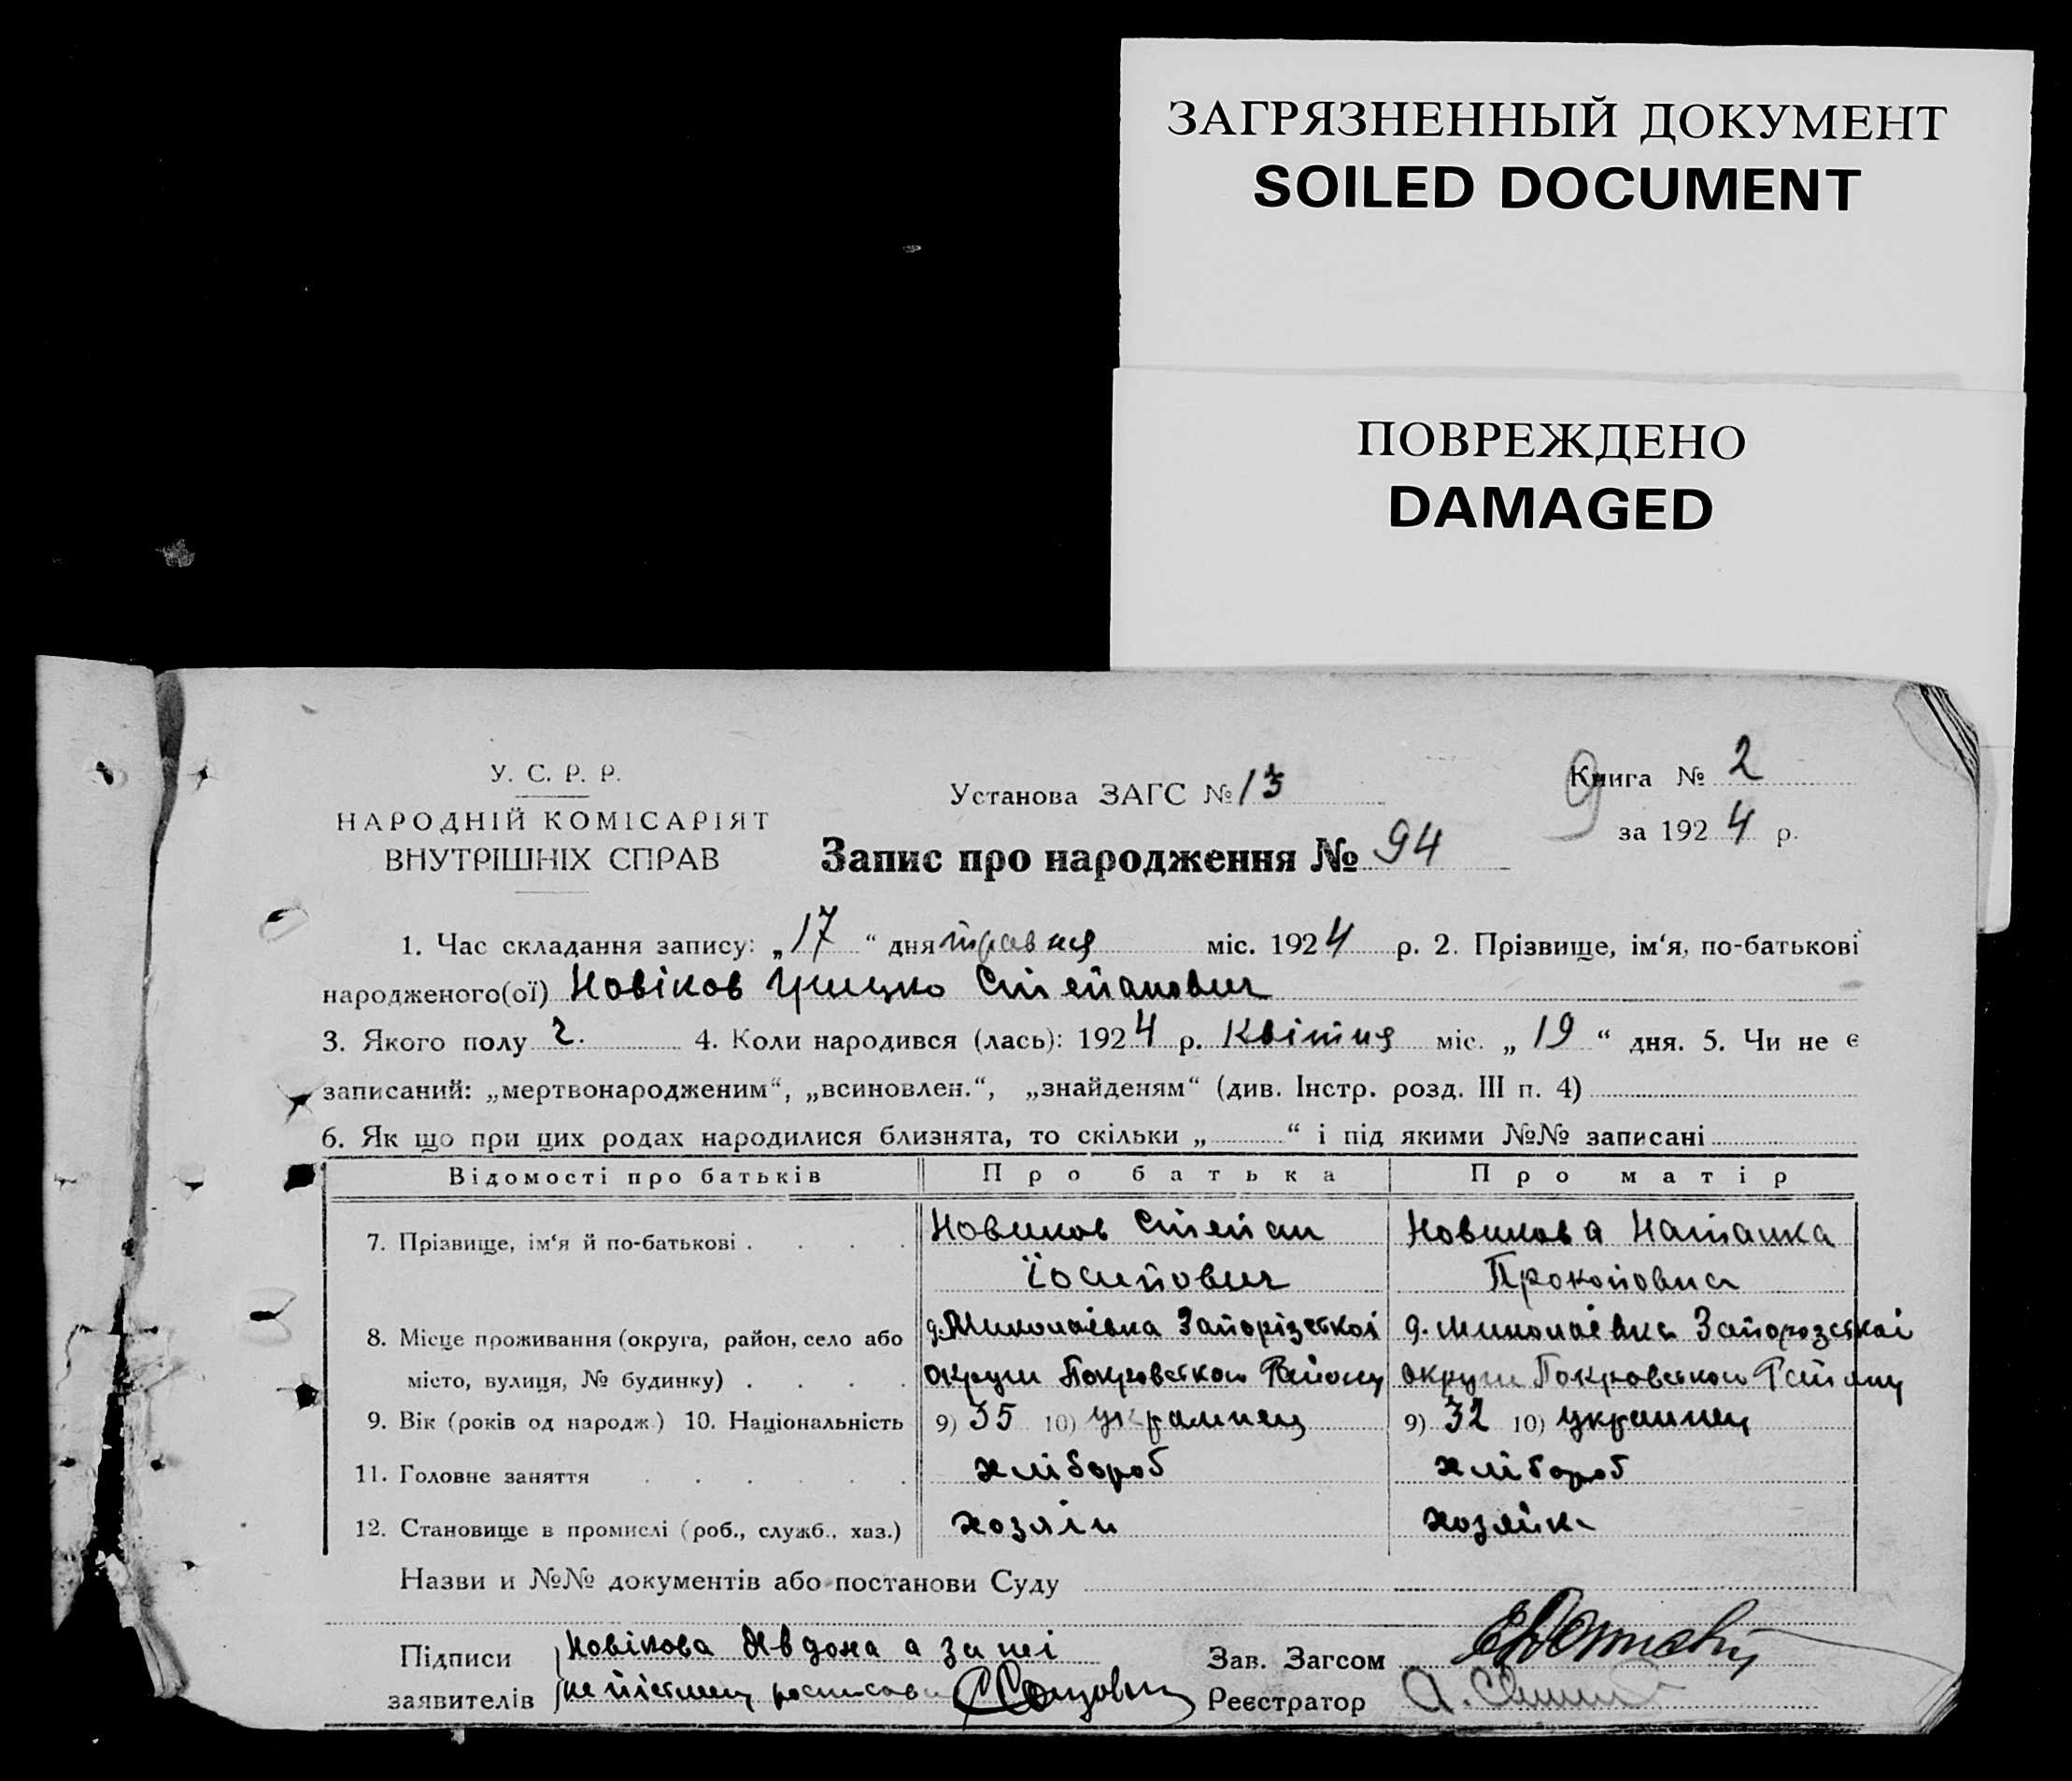 ЗАГРЯЗНЕННЫЙ ДОКУМЕНТ
SOILED DOCUMENT
ПОВРЕЖДЕНО
DAMAGED
У. С. Р. Р.
НАРОДНІЙ КОМІСАРІЯТ
ВНУТРІШНІХ СПРАВ
Установа ЗАГС № 13
Запис про народження № 94
Книга № 2
за 1924 р.
9
1. Час складання запису: „17“ дня травня міс. 1924 р. 2. Прізвище, ім‘я, по-батькові
народженого(ої) Новіков Грицко Степанович
3. Якого полу ч. 4. Коли народився (лась): 1924 р. Квітня міс. „19“ дня. 5. Чи не є
записаний: „мертвонародженим“, „всиновлен.“, „знайденям“ (див. Інстр. розд. III п. 4)
6. Як що при цих родах народилися близнята, то скільки „ “ і під якими №№ записані
Відомості про батьків Про батька Про матір
7. Прізвище, ім‘я й по-батькові . . . . Новиков Степан Новикова Наталка
Їосипович Прокоповна
8. Місце проживання (округа, район, село або д. Миколаївка Запорізської д. Миколаївка Запорозської
місто, вулиця, № будинку) . . . . округи Покровського Району округи Покровського Району
9. Вік (років од народж.) 10. Національність 9) 35 10) украинец 9) 32 10) украинец
11. Головне заняття . . . . . . хлібороб хлібороб
12. Становище в промислі (роб., служб., хаз.) хозяін хозяйка
Назви и №№ документів або постанови Суду
Підписи Новікова Явдоха а за неі
заявителів неписьмену росписався
Зав. Загсом
Реєстратор